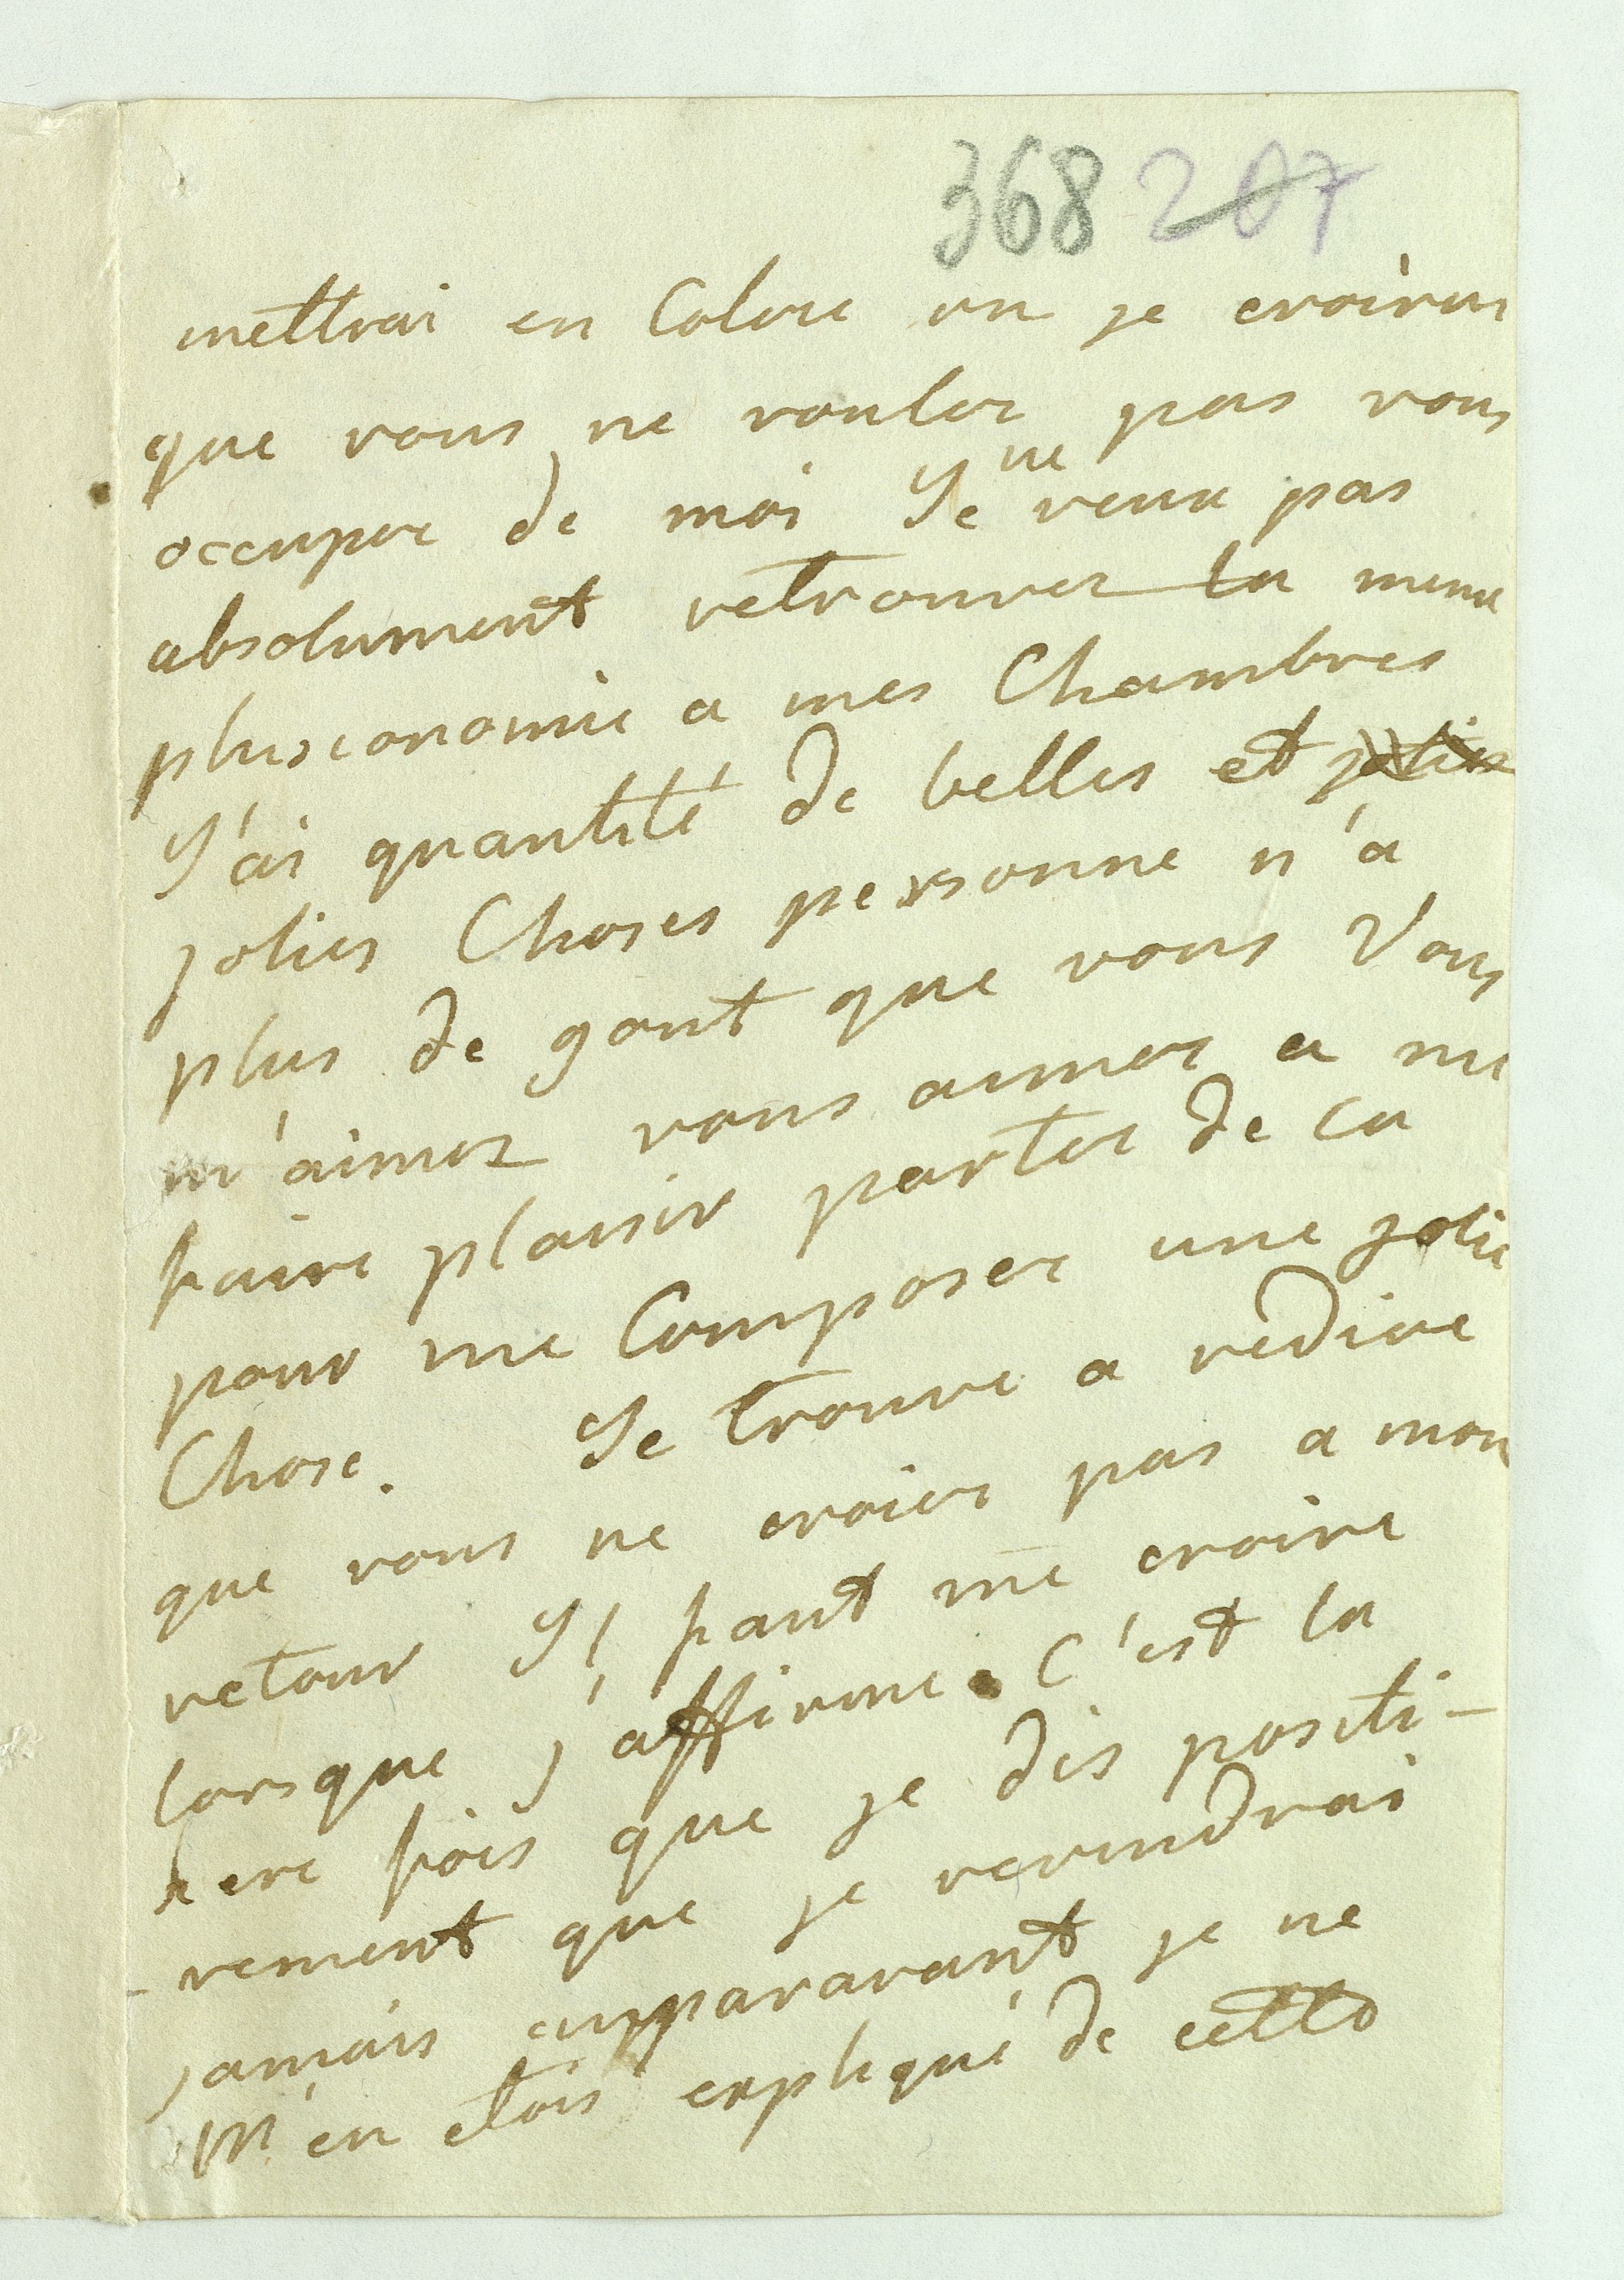 368 207
mettrai en Colere ou je croirai
que vous ne voulez pas vous
occuper de moi Je ne veux pas
absolument retrouver la meme
phisconomie a mes Chambres
J'ai quantité de belles et jolies
jolies Choses personne n'a
plus de gout que vous Vous
m'aimez vous aimez a me
faire plaisir partez de la
pour me Composer une jolie
Chose. Je trouve a redire
que vous ne croiez pas a mon
retour Il faut me croire
lorsque j'affirme. C'est la
1 ere fois que je dis positi-
-vement que je reviendrai
jamais auparavant je ne
M'en etois expliqué de cette